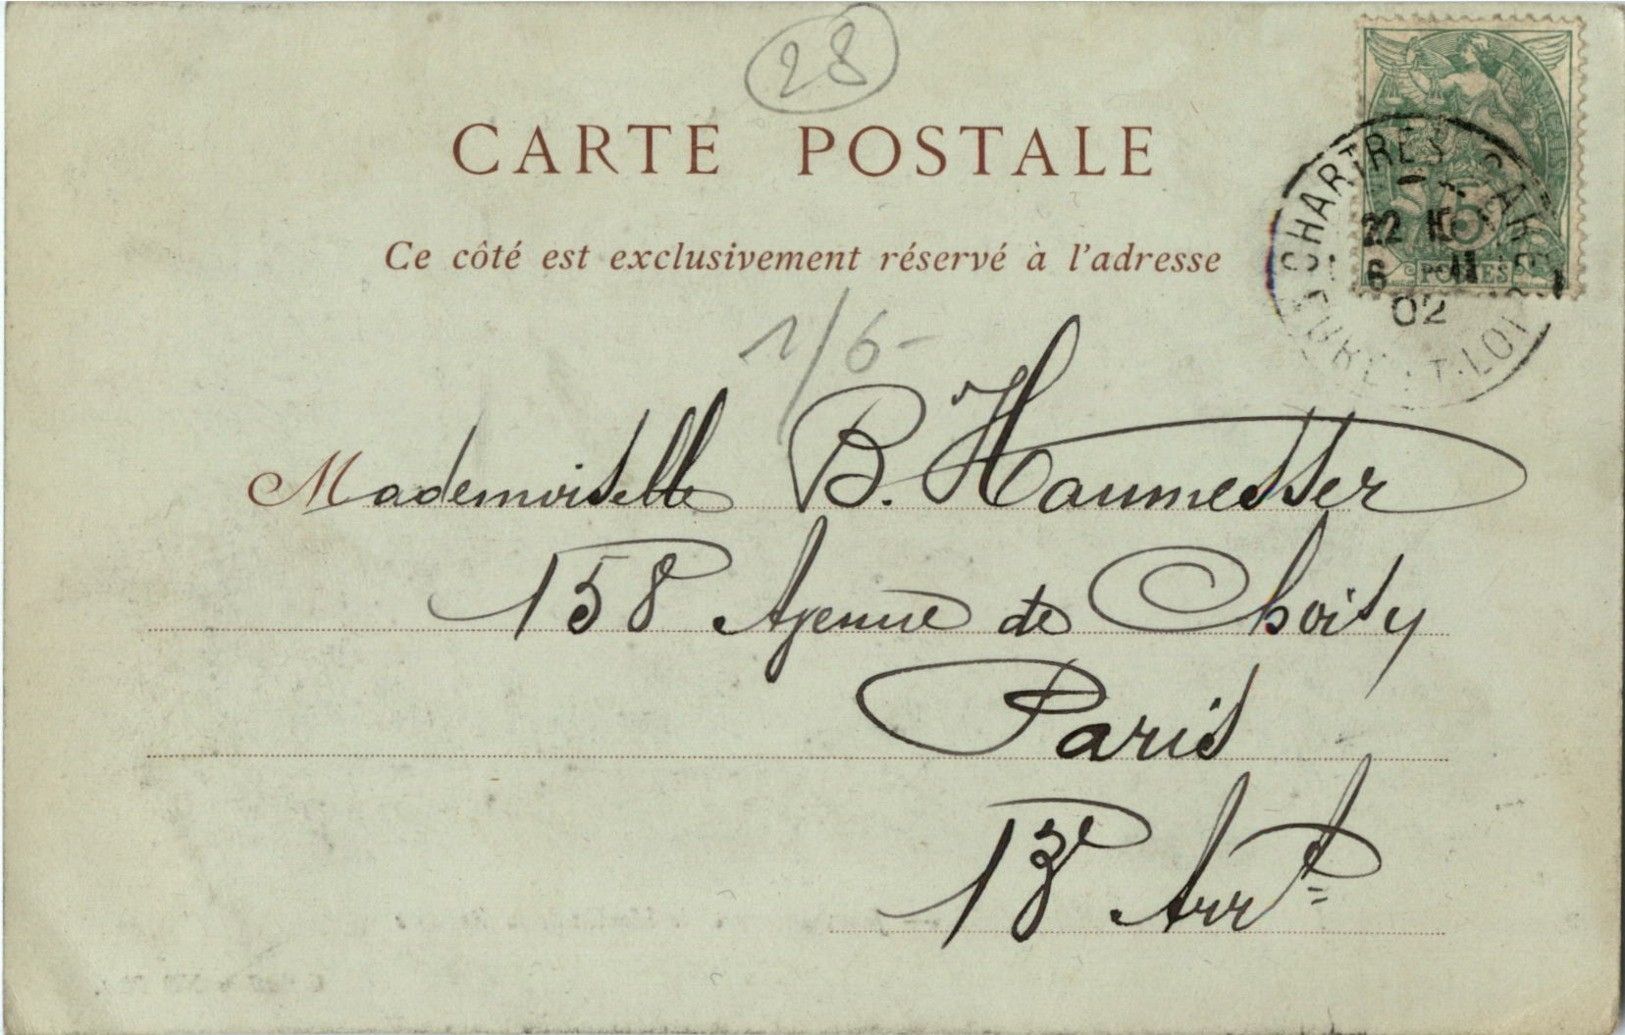 28
CARTE POSTALE
Ce côté est exclusivement réservé à l'adresse
CHARTRES GARE
22
6
02
EURE-ET-LOIR
5
POSTES
1/6-
Mademoiselle B. Haumesser
158 Avenue de Choisy
Paris
13e Arrt